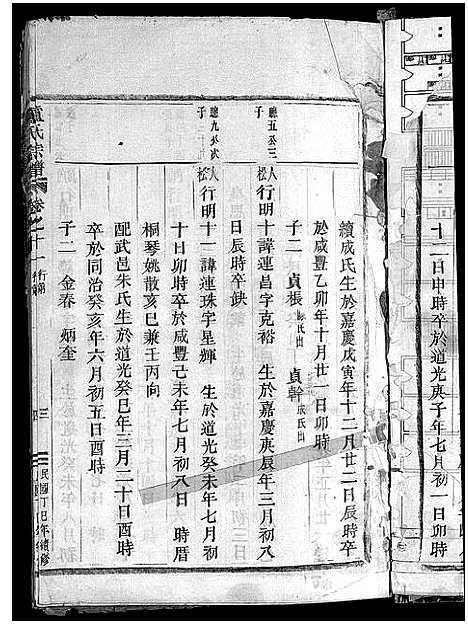 十二日申時卒於道光庚子年七月初一日卯時
續成氏生於嘉慶戊寅年十二月廿二日辰時卒
於咸豐乙卯年十月廿一日卯時
子二 貞棖 陳氏出 貞幹 成氏出
聰五公三子
松人行明十諱連昌字克裕 生於嘉慶庚辰年三月初八
日辰時卒缺
聰九公貳子
松人行明十一諱連珠字星輝 生於道光癸未年七月初
十日卯時卒於咸豐己未年七月初八日 時厝
桐琴姚散亥巳兼壬丙向
配武邑朱氏生於道光癸巳年三月二十日酉時
卒於同治癸亥年六月初五日酉時
子二 金春 炳奎
氏宗譜 卷二十一 行第
民國丁巳年續修